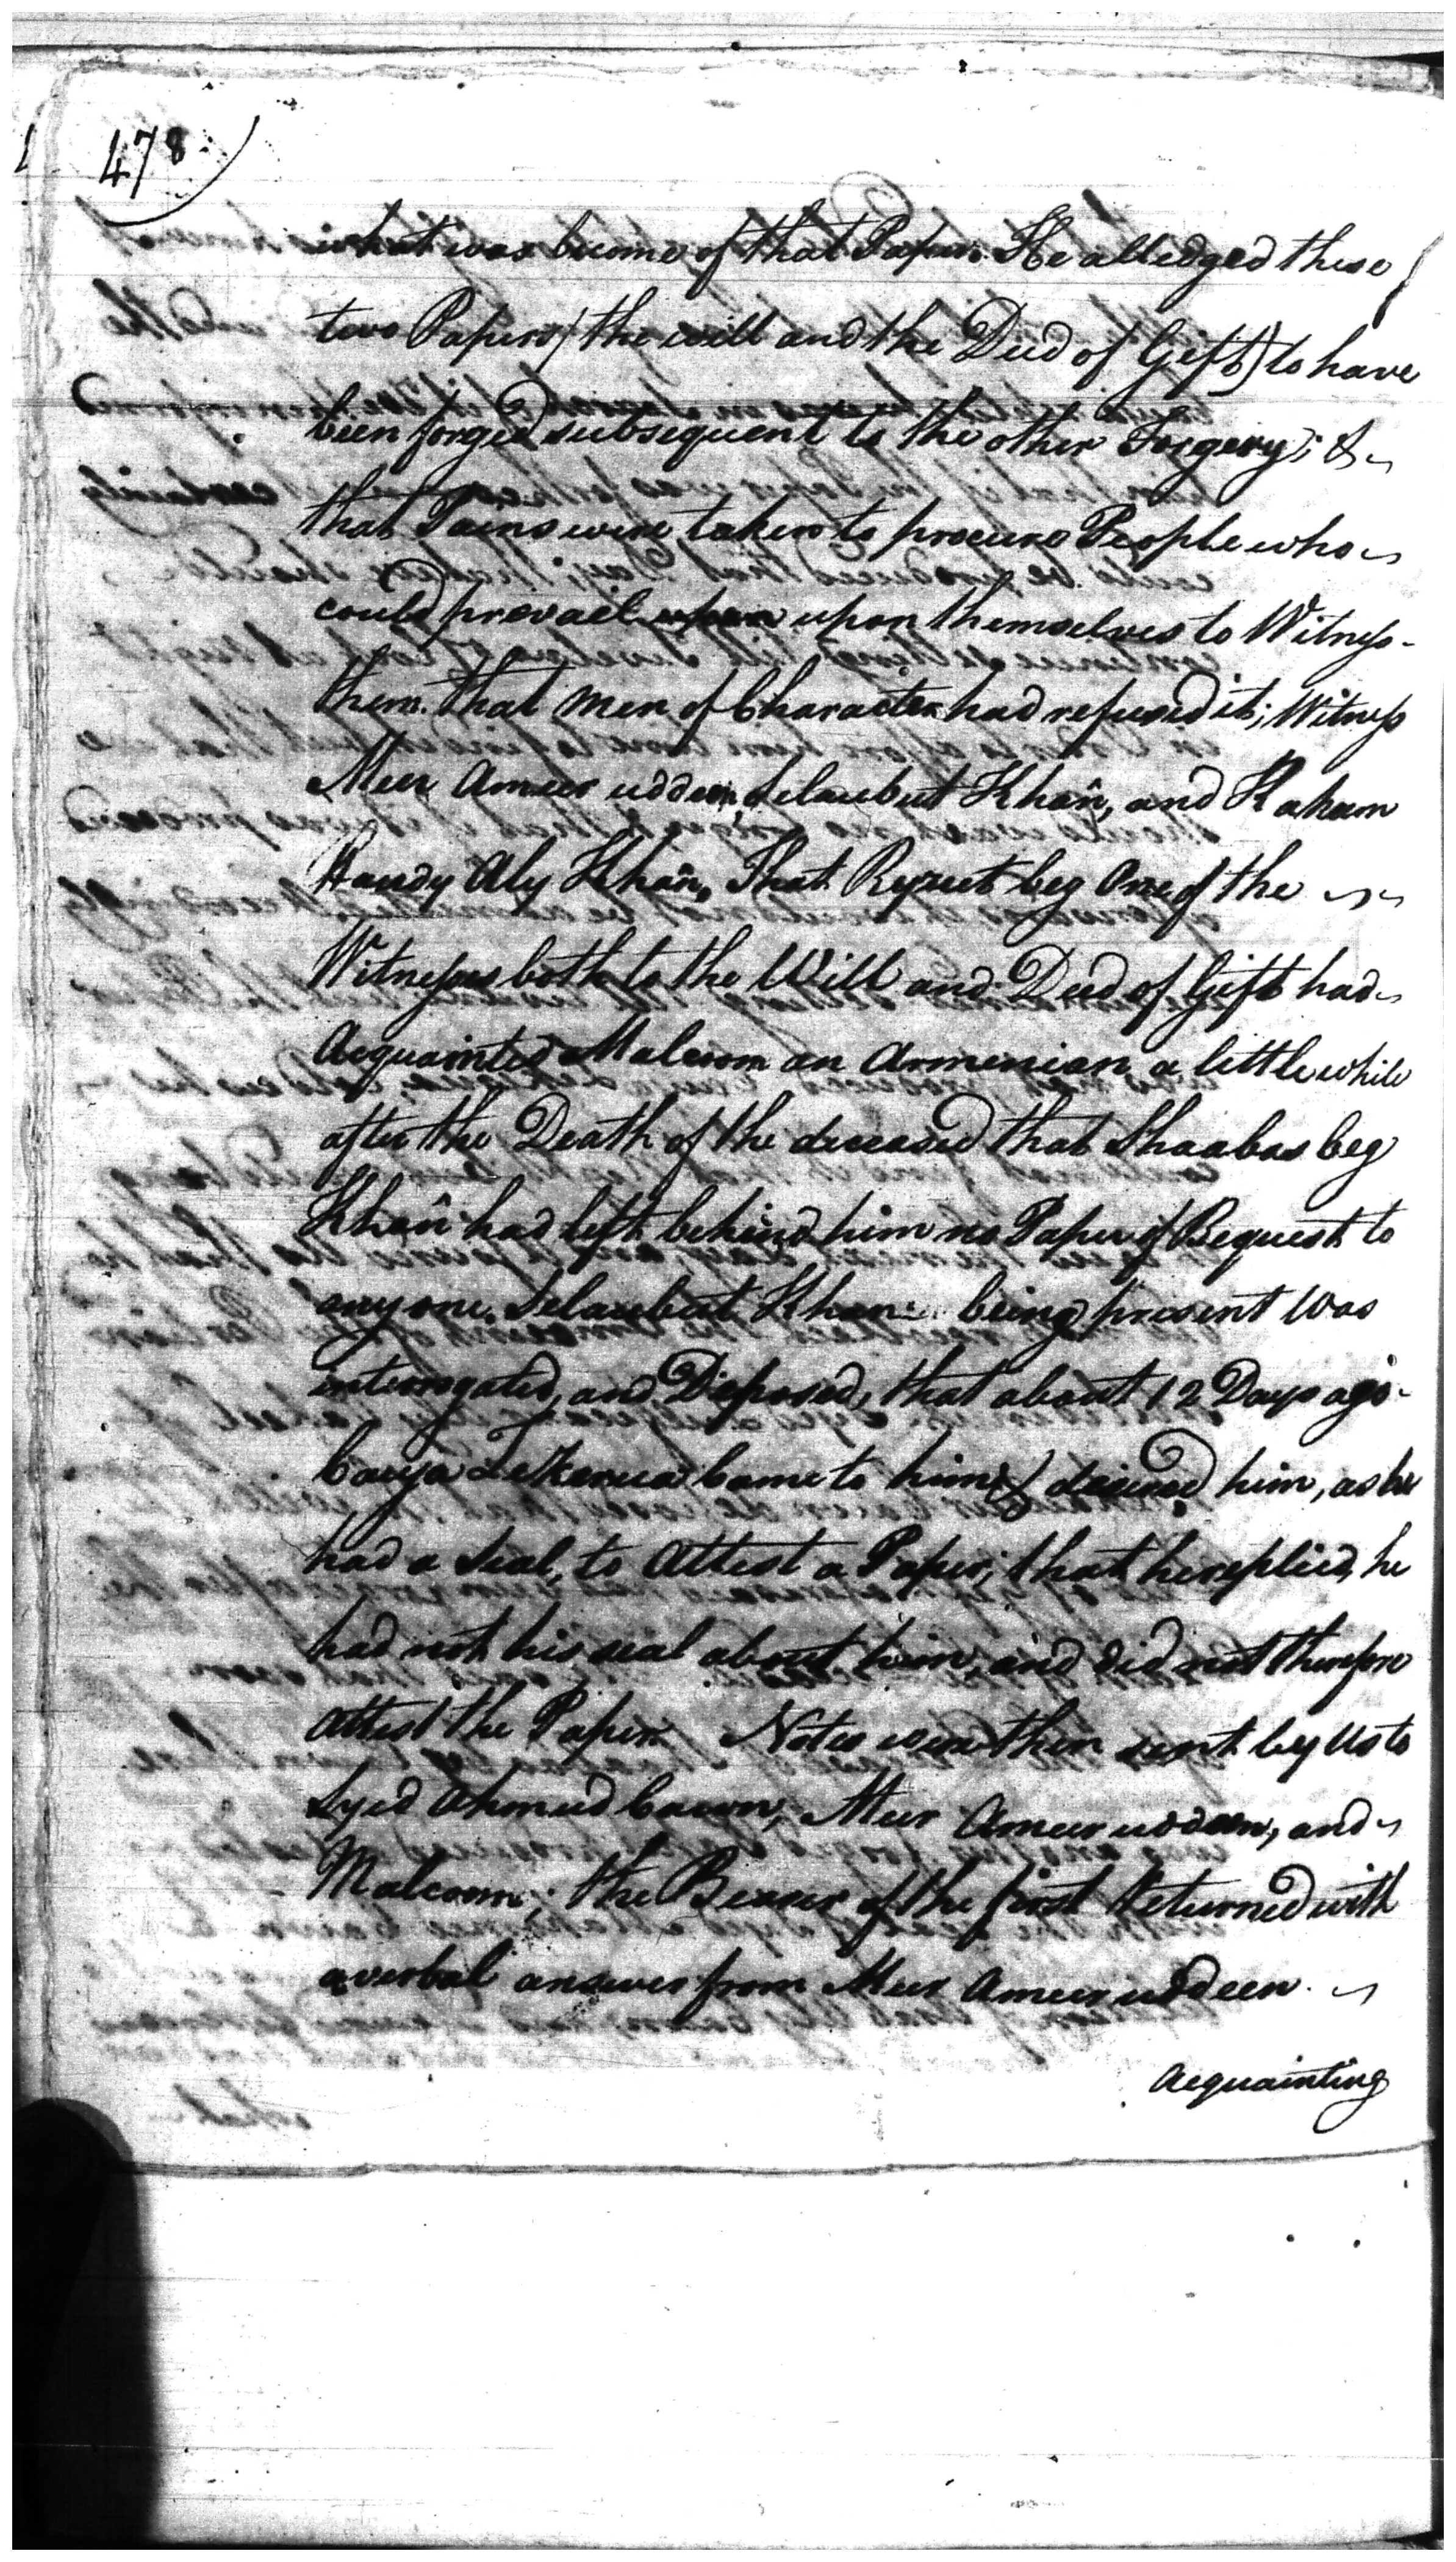 478
what was become of that Paper. He alledged these
two Papers (the will and the Deed of Gift) to have
been forged subsequent to the other Forgery; &
that Pains were taken to procure People who
could prevail upon themselves to Witness
them. that men of Character had refused it; Witness
Meer Ameer uddeen, Selaubut Khân, and Kaham
Haudy Aly Khân, That Ryzut beg One of the
Witnesses both to the Will and Deed of Gift had
Acquainted Malcom an Armenian a little while
after the Death of the deceased that Shaabas beg
Khân had left behind him no Paper of Bequest to
any one. Selaubut Khan being present Was
interrogated, and Deposed, that about 12 Days ago
Cauja Zekerua Came to him & desired him, as he
had a Seal, to Attest a Paper; that he replied, he
had not his seal about him, and did not therefore
Attest the Paper. Notes were then sent by Us to
Syed Ahmud Cawn, Meer Ameer uddeen, and
Malcom; the Bearer of the first Returned with
a verbal answer from Meer Ameer uddeen
Acquainting